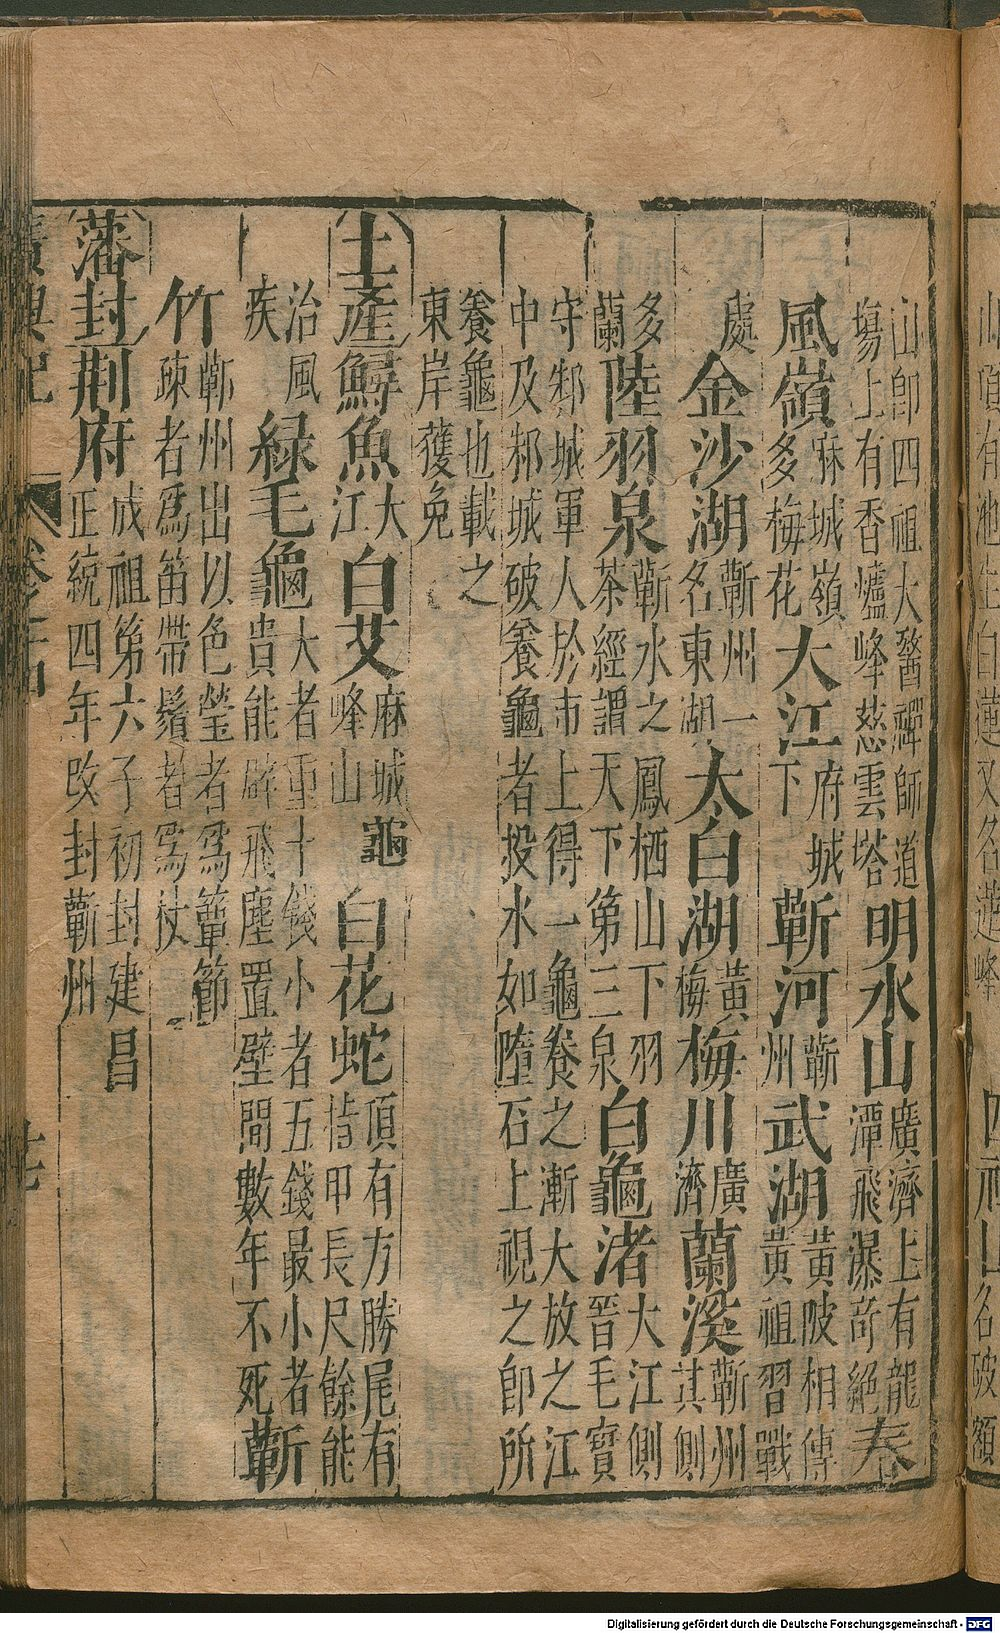 山卽四祖大醫禪師道
塲上有香爐峰慈雲塔
明水山
廣濟上有龍
潭飛瀑奇絕
春
風嶺
麻城嶺
多梅花
大江
府城
下
蘄河
蘄
州
武湖
黃陂相傳
黃祖習戰
處
金沙湖
蘄州一
名東湖
太白湖
黃
梅
梅川
廣
濟
蘭溪
蘄州
其側
多
蘭
陸羽泉
蘄水之鳳栖山下羽
茶經謂天下第三泉
白龜渚
大江側
晉毛寶
守邾城軍人於市上得一龜養之漸大放之江
中及邾城破養龜者投水如墮石上視之卽所
養龜也載之
東岸獲免
土產
鱘魚
大
江
白艾
麻城
峰山
龜
白花蛇
頂有方勝尾有
指甲長尺餘能
治風
疾
綠毛龜
大者重十錢小者五錢最小者
貴能辟飛塵置壁間數年不死
蘄
竹
蘄州出以色瑩者爲簟節
疎者爲笛帶鬚者爲杖
藩封
荆府
成祖第六子初封建昌
正統四年改封蘄州
廣輿記
卷之十四
Digitalisierung gefördert durch die Deutsche Forschungsgemeinschaft - DFG